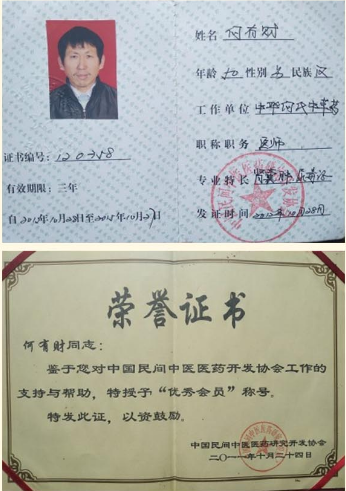 姓名 何有财
年龄 性别 男 民族 汉
工作单位 中华何氏中草药
职称职务 医师
证书编号: 120358
专业特长
有效期限: 三年
发证时间 2012年10月28日
荣誉证书
何有财同志:
鉴于您对中国民间中医医药开发协会工作的
支持与帮助,特授予“优秀会员”称号。
特发此证,以资鼓励。
中国民间中医医药研究开发协会
二〇一一年十月二十四日